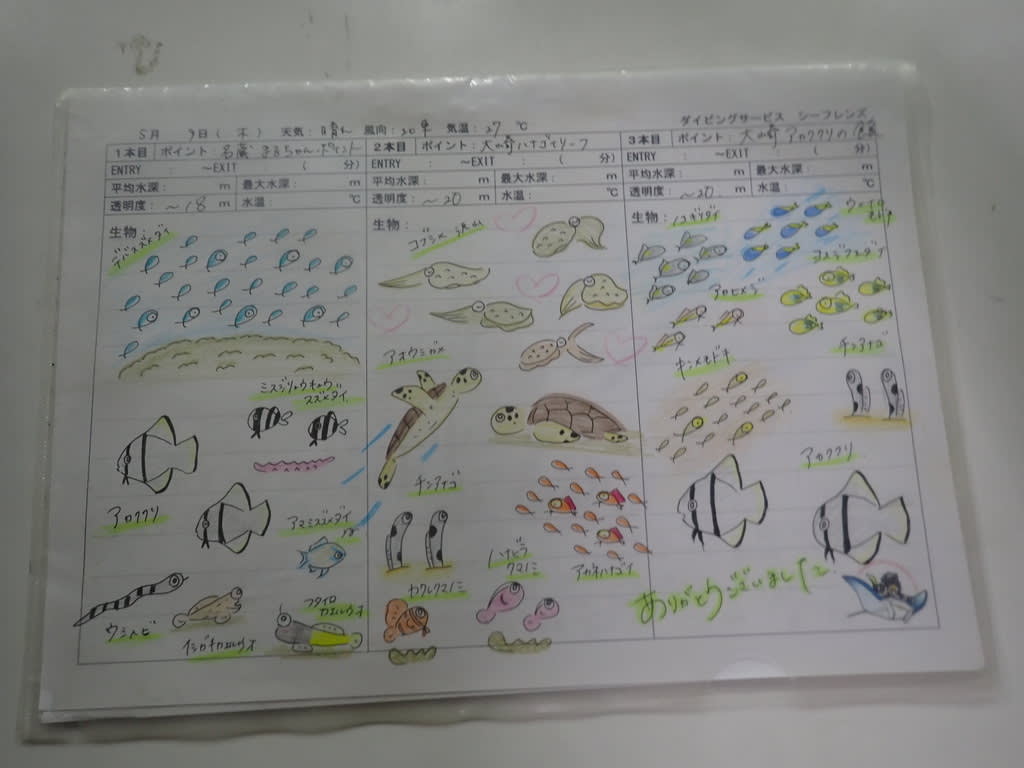 ダイビングサービス シーフレンズ
5月 9日(木) 天気: 晴れ 風向: 気温: 27 ℃
1本目 ポイント: 名蔵 まるちゃんポイント
ENTRY : ～EXIT : ( 分)
平均水深: m 最大水深: m
透明度: ～18 m 水温: ℃
生物:
デバスズメダイ
ミスジリュウキュウ
スズメダイ
アカククリ
アマミスズメダイ
ウミヘビ
イシガキカエルウオ
フタイロ
カエルウオ
2本目 ポイント: 大崎ハナゴイリーフ
ENTRY : ～EXIT : ( 分)
平均水深: m 最大水深: m
透明度: ～20 m 水温: ℃
生物:
コブシメ
アオウミガメ
チンアナゴ
カクレクマノミ
ハナビラ
クマノミ
アカネハナゴイ
3本目 ポイント: 大崎 アカククリの
ENTRY : ～EXIT : ( 分)
平均水深: m 最大水深: m
透明度: ～20 m 水温: ℃
生物: ノコギリダイ
ウメイロ
モドキ
ヨスジフエダイ
アカヒメジ
キンメモドキ
チンアナゴ
アカククリ
ありがとうございました